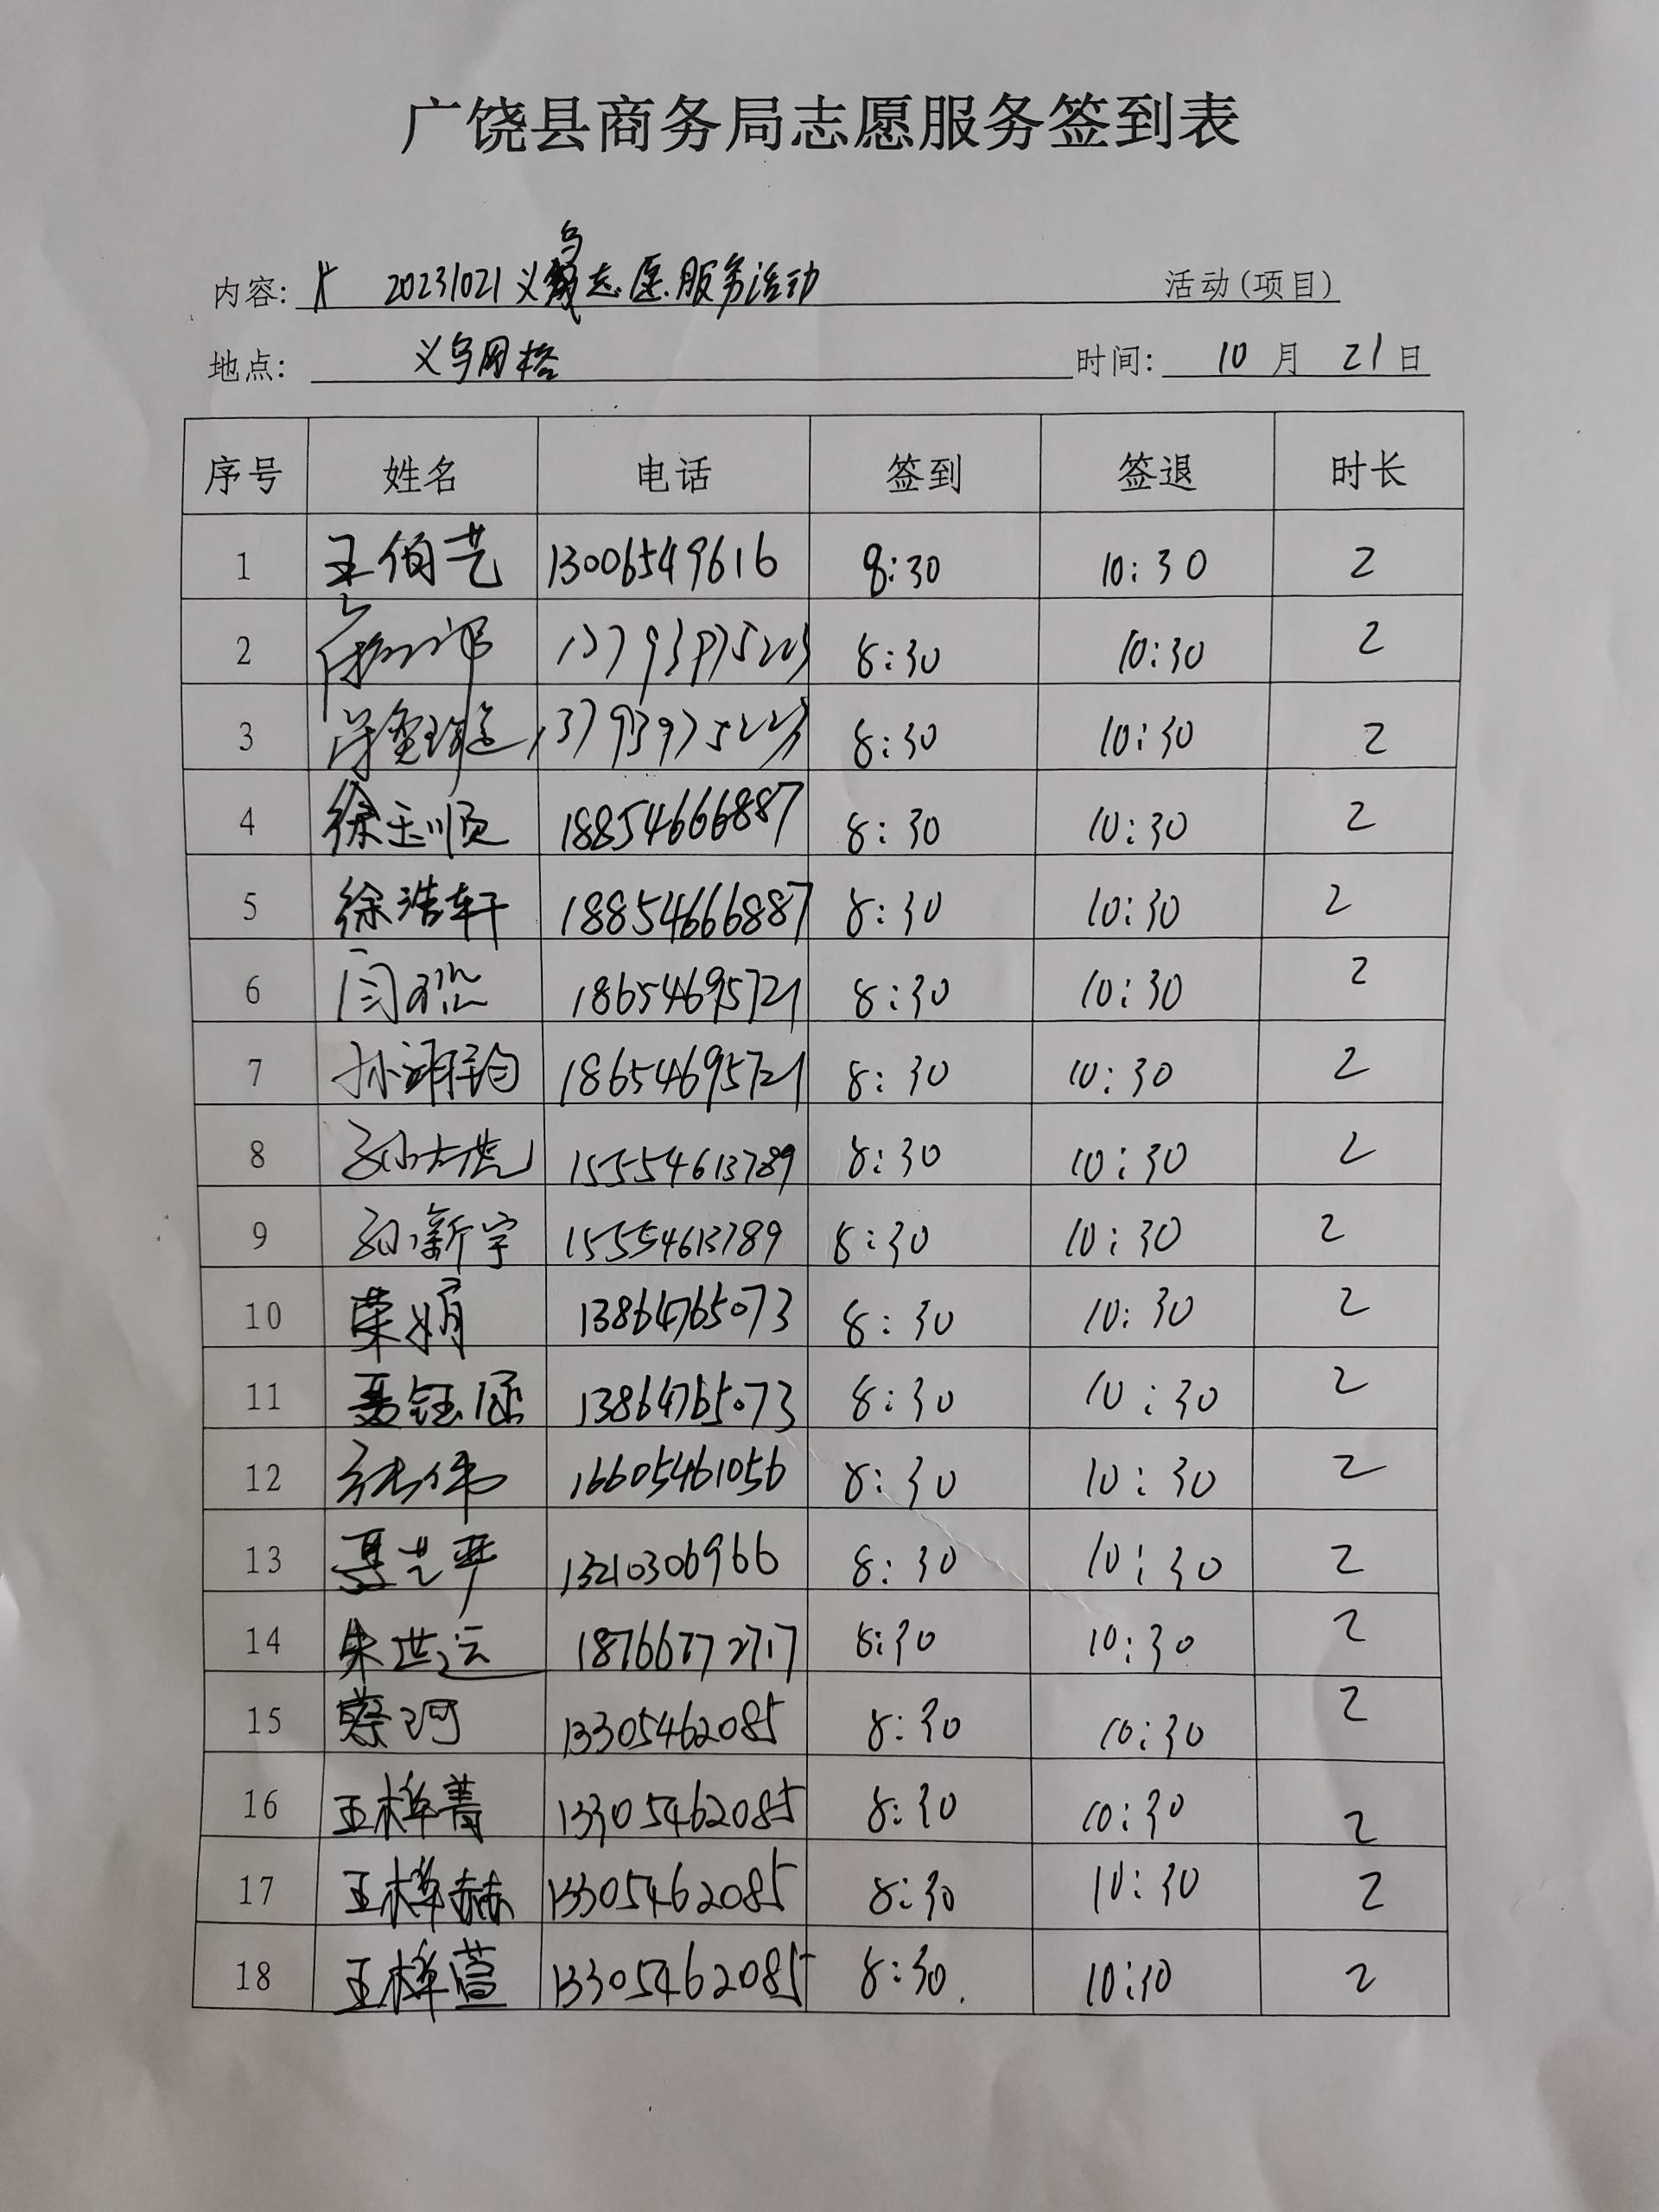 广饶县商务局志愿服务签到表
内容: 20231021义乌志愿服务活动 活动(项目)
地点: 义乌网格 时间: 10月21日
序号 姓名 电话 签到 签退 时长
1 王伯艺 13006549616 8:30 10:30 2
2 13793975223 8:30 10:30 2
3 13793975223 8:30 10:30 2
4 徐玉顺 18854666887 8:30 10:30 2
5 徐浩轩 18854666887 8:30 10:30 2
6 18654695721 8:30 10:30 2
7 18654695721 8:30 10:30 2
8 15554613789 8:30 10:30 2
9 孙新宇 15554613789 8:30 10:30 2
10 荣娟 13864765073 8:30 10:30 2
11 聂钰涵 13864765073 8:30 10:30 2
12 16605461056 8:30 10:30 2
13 13210306966 8:30 10:30 2
14 朱世运 18766772717 8:30 10:30 2
15 蔡珂 13305462085 8:30 10:30 2
16 王梓菁 13305462085 8:30 10:30 2
17 王梓赫 13305462085 8:30 10:30 2
18 王梓萱 13305462085 8:30 10:30 2